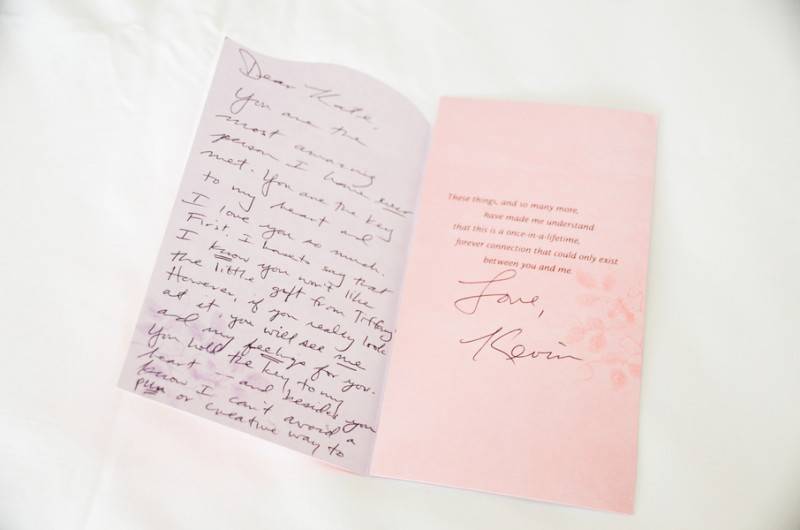 Dear Kate,
You are the
most amazing
person I have ever
met. You are the key
to my heart and
I love you so much.
First, I have to say that
I know you won't like
the little gift from Tiffany.
However, if you really look
at it, you will see me
and my feelings for you.
You hold the key to my
heart — and besides you
know I can't avoid a
pun or creative way to
These things, and so many more,
have made me understand
that this is a once-in-a-lifetime,
forever connection that could only exist
between you and me.
Love,
Kevin